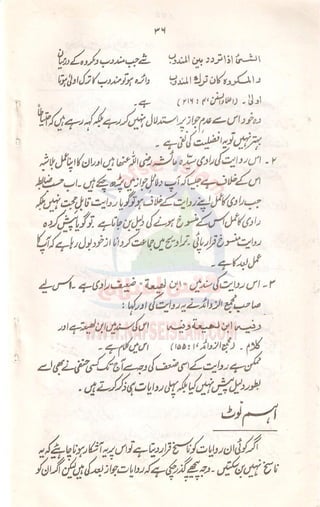 ۳۶
الشئ اذا تردد بين المندوب شے جب مندوب و مکروہ کے درمیان
والمكروه كان ترك المندوب دائرہ ہو تو مندوب کا ترک اولیٰ ہوتا
اولىٰ۔ ہے۔
وہ خود اس سے عدم جواز پر استدلال نہیں کر رہے بلکہ کہہ رہے ہیں کہ احتیاطاً
بہتر نہیں تو یہ افضلیت کی نفی ہے۔
۲۔ اس روایت کی راوی سیدہ عائشہ رضی اللہ عنہا ہیں اور ان کا اپنا عمل بلاشبہ
اس کے خلاف ہے جیسا کہ آپ دلائل جواز میں پڑھ چکے ہیں۔ اب حسب ضابطہ
جب راوی کا عمل اپنے روایت کے خلاف ہو تو گویا روایت قابل حجت نہیں بلکہ
راوی کا عمل اس کے منسوخ ہونے کی دلیل بن جاتا ہے۔ تو گویا پیش کردہ
روایت منسوخ قرار پائی۔ تراویح میں جماعت کروانا از خود بول رہا ہے کہ آپ کا
عمل بعد کا ہے۔
۳۔ اس روایت کی سند میں۔ ابن لهيعة۔ ضعیف راوی ہے۔ اسی لیے
صاحب مجمع الزوائد نے یہ روایت کی اور کہا:
وفيه ابن لهيعة وفيه اس کی سند میں ابن لھیعۃ ہے اور
كلام۔ (مجمع الزوائد ۱:۱۵۵) اس میں کلام ہے۔
ممکن ہے روایت کے اسی ضعف کی وجہ سے آج تک کسی حنفی نے بھی اسے
بطور دلیل پیش نہیں کیا بلکہ پہلی روایات ہی ذکر کرتے ہیں۔
اہم نوٹ
اگر کوئی ان روایات کو ناسخ قرار دیتا ہے تو اس پر یہ آشکار ہونا چاہئے کہ یہ
ناسخ نہیں بن سکتیں۔ وجہ پیچھے گذر چکی ہے کہ روایات جواز بعد کی ہیں لیکن اگر ان کو
WWW.NAFSEISLAM.COM